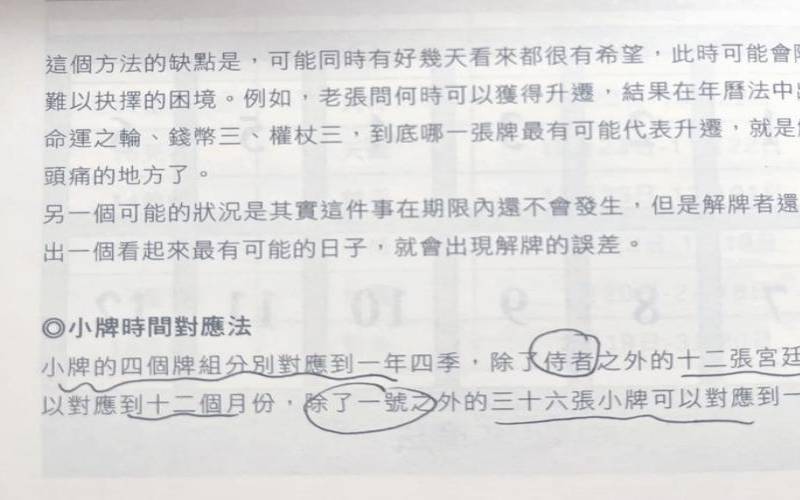 這個方法的缺點是，可能同時有好幾天看來都很有希望，此時可能會
難以抉擇的困境。例如，老張問何時可以獲得升遷，結果在年曆法中
命運之輪、錢幣三、權杖三，到底哪一張牌最有可能代表升遷，就是
頭痛的地方了。
另一個可能的狀況是其實這件事在期限內還不會發生，但是解牌者還
出一個看起來最有可能的日子，就會出現解牌的誤差。
◎小牌時間對應法
小牌的四個牌組分別對應到一年四季，除了侍者之外的十二張宮廷
以對應到十二個月份，除了一號之外的三十六張小牌可以對應到一